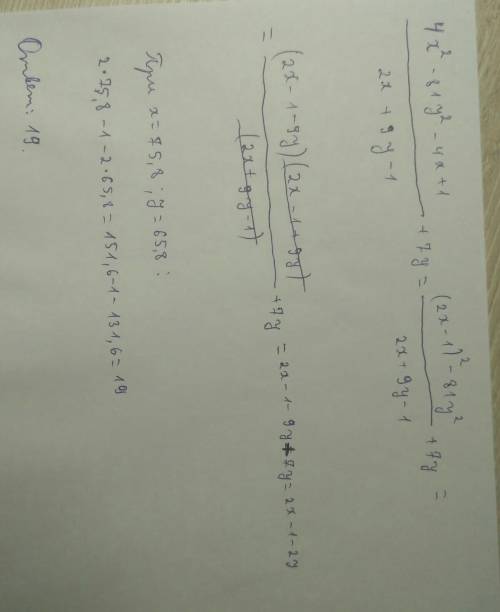 (4x² - 81y² - 4x + 1)/(2x + 9y - 1) + 7y = ((2x - 1)² - 81y²)/(2x + 9y - 1) + 7y =
= ((2x - 1 - 9y)(2x - 1 + 9y))/((2x + 9y - 1)) + 7y = 2x - 1 - 9y + 7y = 2x - 1 - 2y
При x = 75,8 ; y = 65,8 :
2·75,8 - 1 - 2·65,8 = 151,6 - 1 - 131,6 = 19
Ответ: 19.